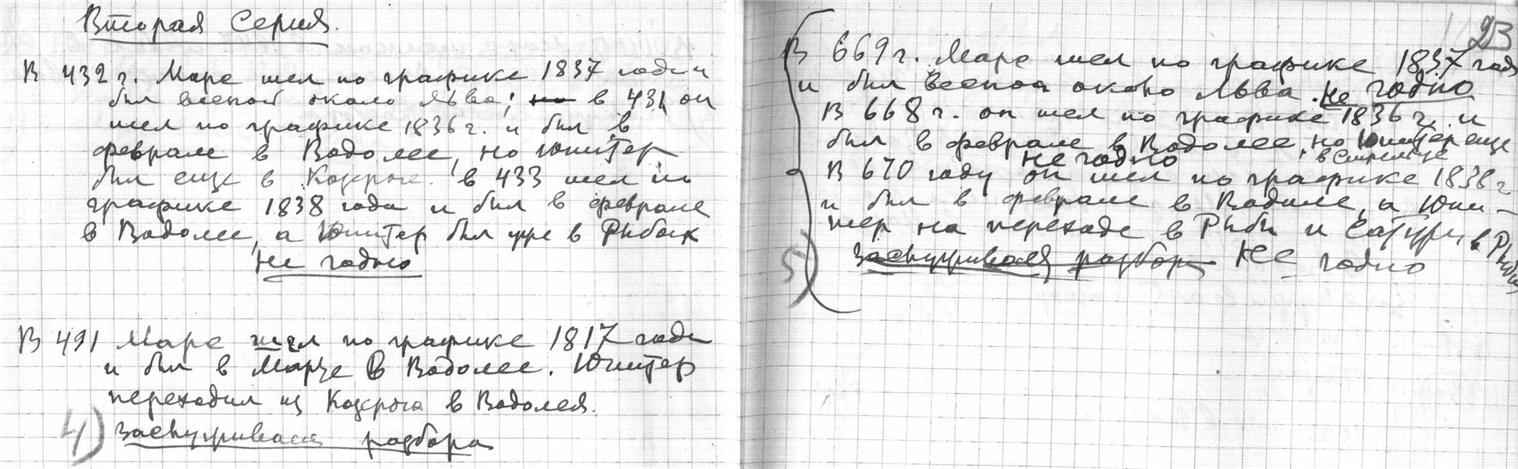 Вторая Серия.
В 432 г. Марс шел по графике 1837 года и
был весной около Льва; но в 431 он
шел по графике 1836 г. и был в
феврале в Водолее, но Юпитер
был еще в Козероге. в 433 шел по
графике 1838 года и был в феврале
в Водолее, а Юпитер был уже в Рыбах
Не годно
В 491 Марс шел по графике 1817 года
и был в Марте в Водолее. Юпитер
переходил из Козерога в Водолея.
4) Заслуживает разбора
23
В 669 г. Марс шел по графике 1837 года
и был весной около Льва. Не годно
В 668 г. он шел по графике 1836 г. и
был в феврале в Водолее, но Юпитер еще
в Стрельце
не годно
В 670 году он шел по графике 1838 г
и был в феврале в Водолее, а Юпи-
тер на переходе в Рыбы и Сатурн в Рыбах
5) Заслуживает разбора Не годно